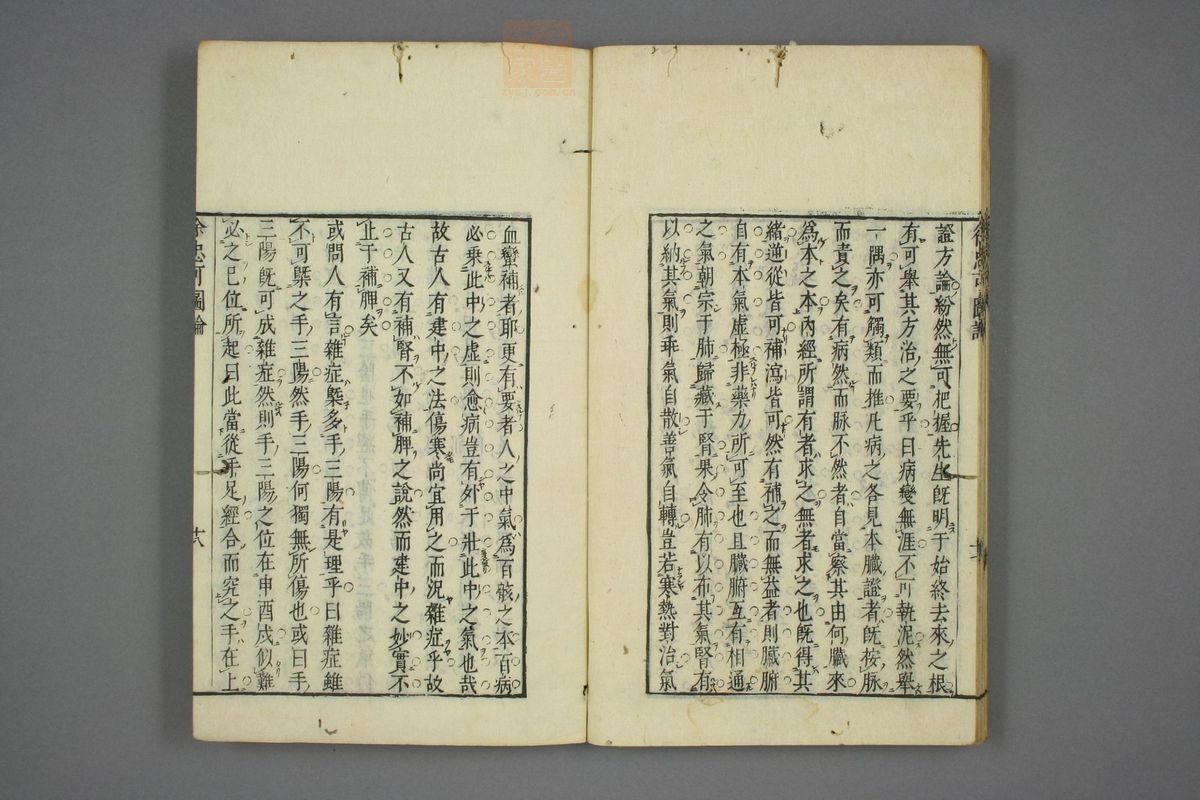 證方論紛然無可把握先生既明于始終去來之根
有可舉其方治之要乎曰病變無涯不可執泥然舉
一隅亦可觸類而推凡病之各見本臟證者既按脉
而責之矣有病然而脉不然者自當察其由何臟來
為本之本內經所謂有者求之無者求之也既得其
緒逆從皆可補瀉皆可然有補之而無益者則臟腑
自有本氣虛極非藥力所可至也且臟腑互有相通
之氣朝宗于肺歸藏于腎果令肺有以布其氣腎有
以納其氣則乖氣自散善氣自轉豈若寒熱對治氣
血蠻補者耶更有要者人之中氣為百骸之本百病
必乘此中之虛則愈病豈有外于壯此中之氣也哉
故古人有建中之法傷寒尚宜用之而況雜症乎故
古人又有補腎不如補脾之說然而建中之妙實不
止于補脾矣
或問人有言雜症槩多手三陽有是理乎曰雜症雖
不可槩之手三陽然手三陽何獨無所傷也或曰手
三陽既可成雜症然則手三陽之位在申酉戌似難
必之巳位所起曰此當從手足經合而究之手在上
徐忠可圖論
廿八
zysj.com.cn